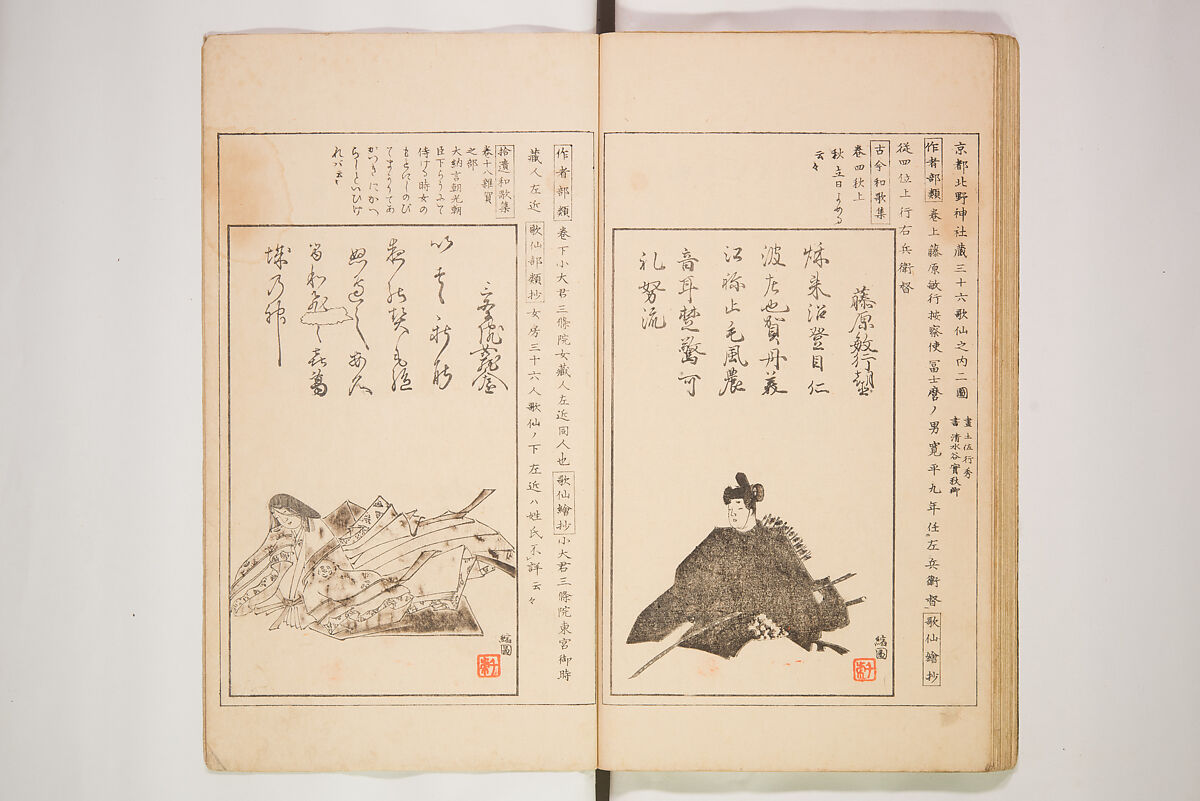 京都北野神社蔵三十六歌仙之内二圖
畫土佐行秀
書清水谷實秋卿
作者部類 巻上藤原敏行按察使冨士麿ノ男寛平九年任左兵衛督 歌仙繪抄
従四位上行右兵衛督
古今和歌集
巻四秋上
秋立日よめる
云々
藤原敏行朝臣
穐来沼登目仁
波左也賀丹義
江祢止毛風農
音耳楚驚可
礼努流
縮圖
作者部類 巻下小大君三條院女蔵人左近同人也 歌仙繪抄 小大君三條院東宮御時
蔵人左近 歌仙部類抄 女房三十六人歌仙ノ下左近ハ姓氏不詳云々
拾遺和歌集
巻十八雜賀
之部
大納言朝光朝
臣下らうにて
侍ける時女の
もとにしのび
てまかりてあ
かつきにかへ
らしといひけ
れハ云々
縮圖